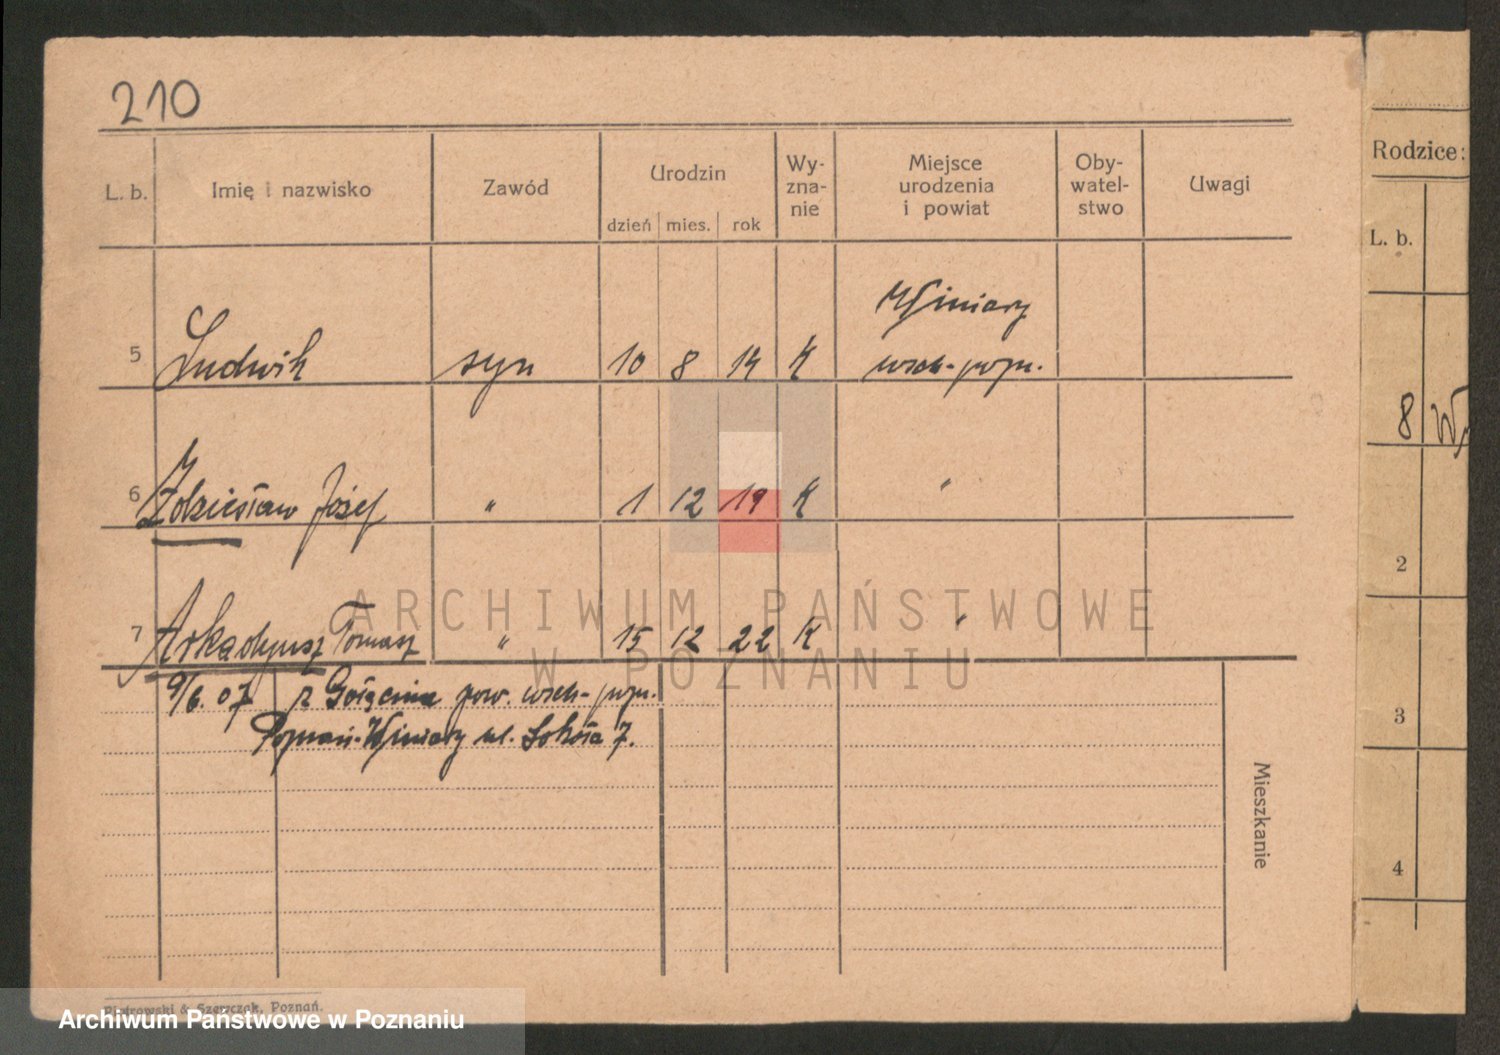 210
L. b. Imię i nazwisko Zawód Urodzin dzień mies. rok Wy- zna- nie Miejsce urodzenia i powiat Oby- watel- stwo Uwagi
Winiary
5 Ludwik syn 10 8 14 K wsch-pozn.
6 Zdzisław Józef " 1 12 19 K "
7 Arkadyusz Tomasz " 15 12 22 K "
9/6. 07 z Gołęcina pow. wsch-pozn.
Poznań-Winiary ul. Sokoła 7.
Mieszkanie
Piotrowski & Szczyczek, Poznań.
Rodzice:
L. b.
8
2
3
4
ARCHIWUM PAŃSTWOWE
W POZNANIU
Archiwum Państwowe w Poznaniu